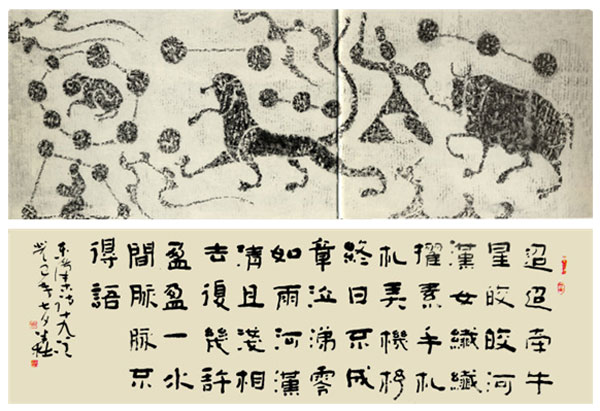 迢迢牽牛
星皎皎河
漢女纖纖
擢素手札
札弄機杼
終日不成
章泣涕零
如雨河漢
清且淺相
去復幾許
盈盈一水
間脈脈不
得語
東漢末詩十九首
七夕